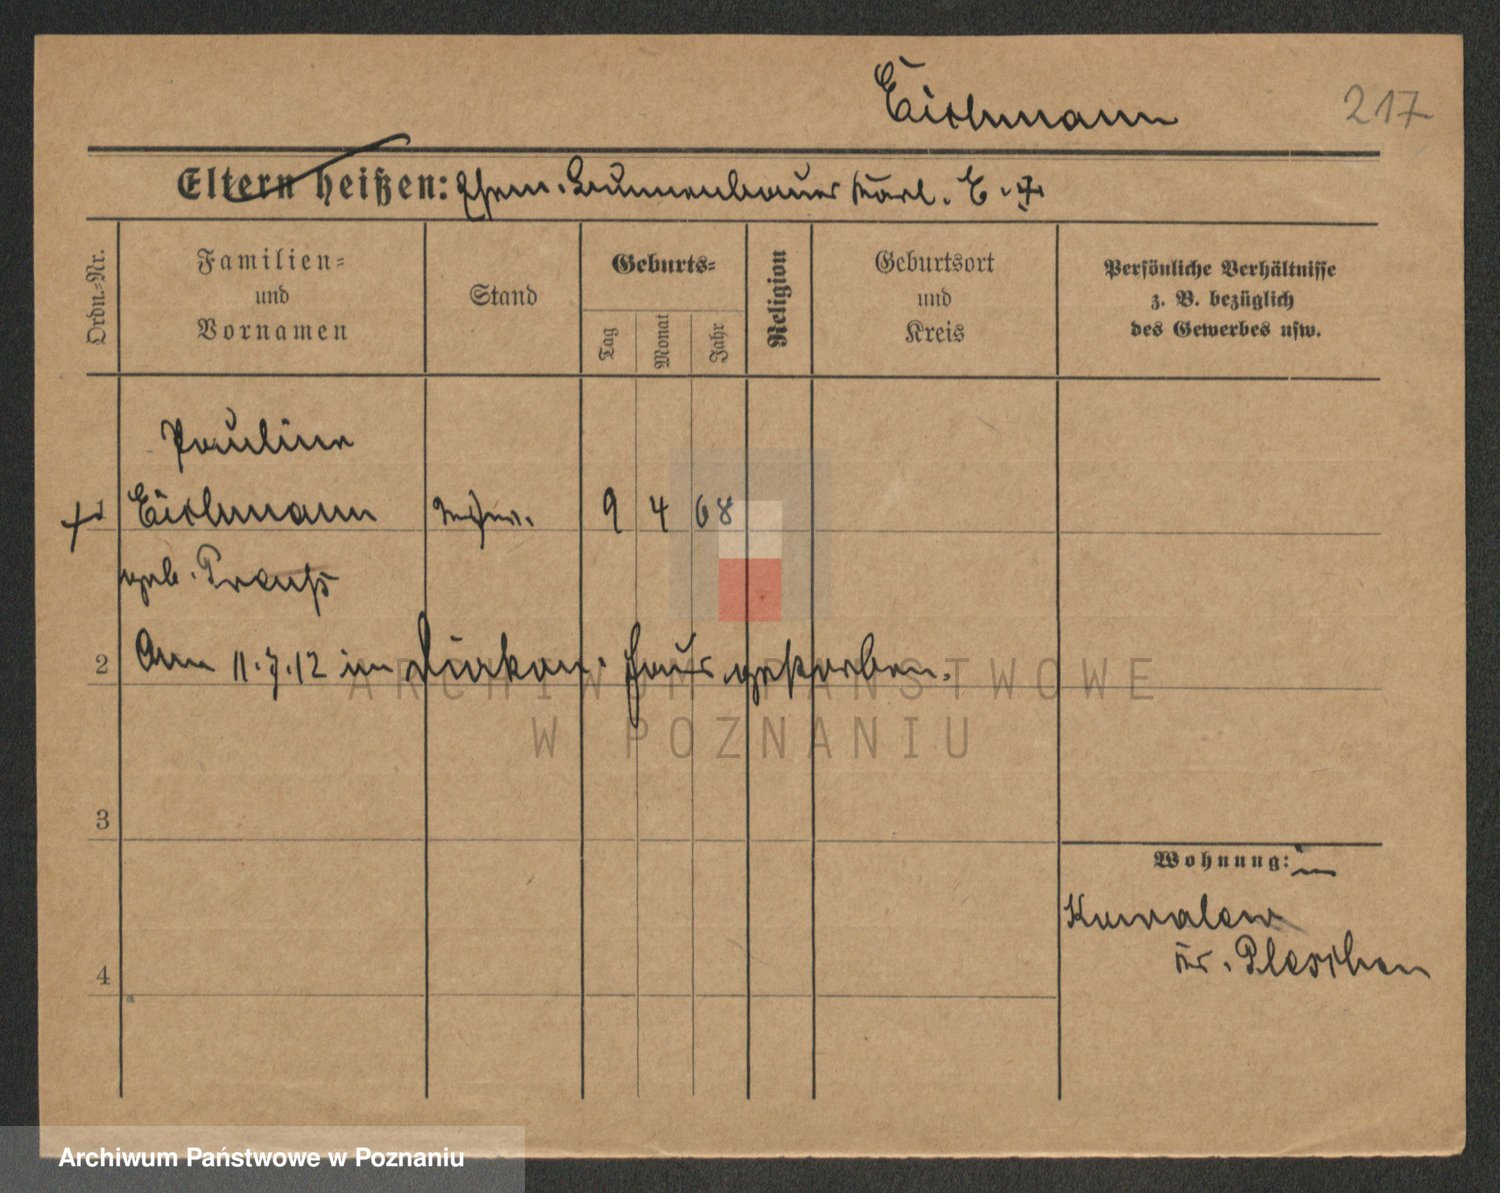 Eichmann
217
Eltern heißen: Ehem. Brunnenbauer Karl. E.
Ordn.-Nr.
Familien-
und
Vornamen
Stand
Geburts-
Tag
Monat
Jahr
Religion
Geburtsort
und
Kreis
Persönliche Verhältnisse
z. B. bezüglich
des Gewerbes usw.
Pauline
1 Eichmann 9 4 68
geb. Preuß
2 Am 11.7.12 im Diakon. Haus gestorben.
3
Wohnung: in
Kowalew
Kr. Pleschen
4
ARCHIWUM PAŃSTWOWE
W POZNANIU
Archiwum Państwowe w Poznaniu